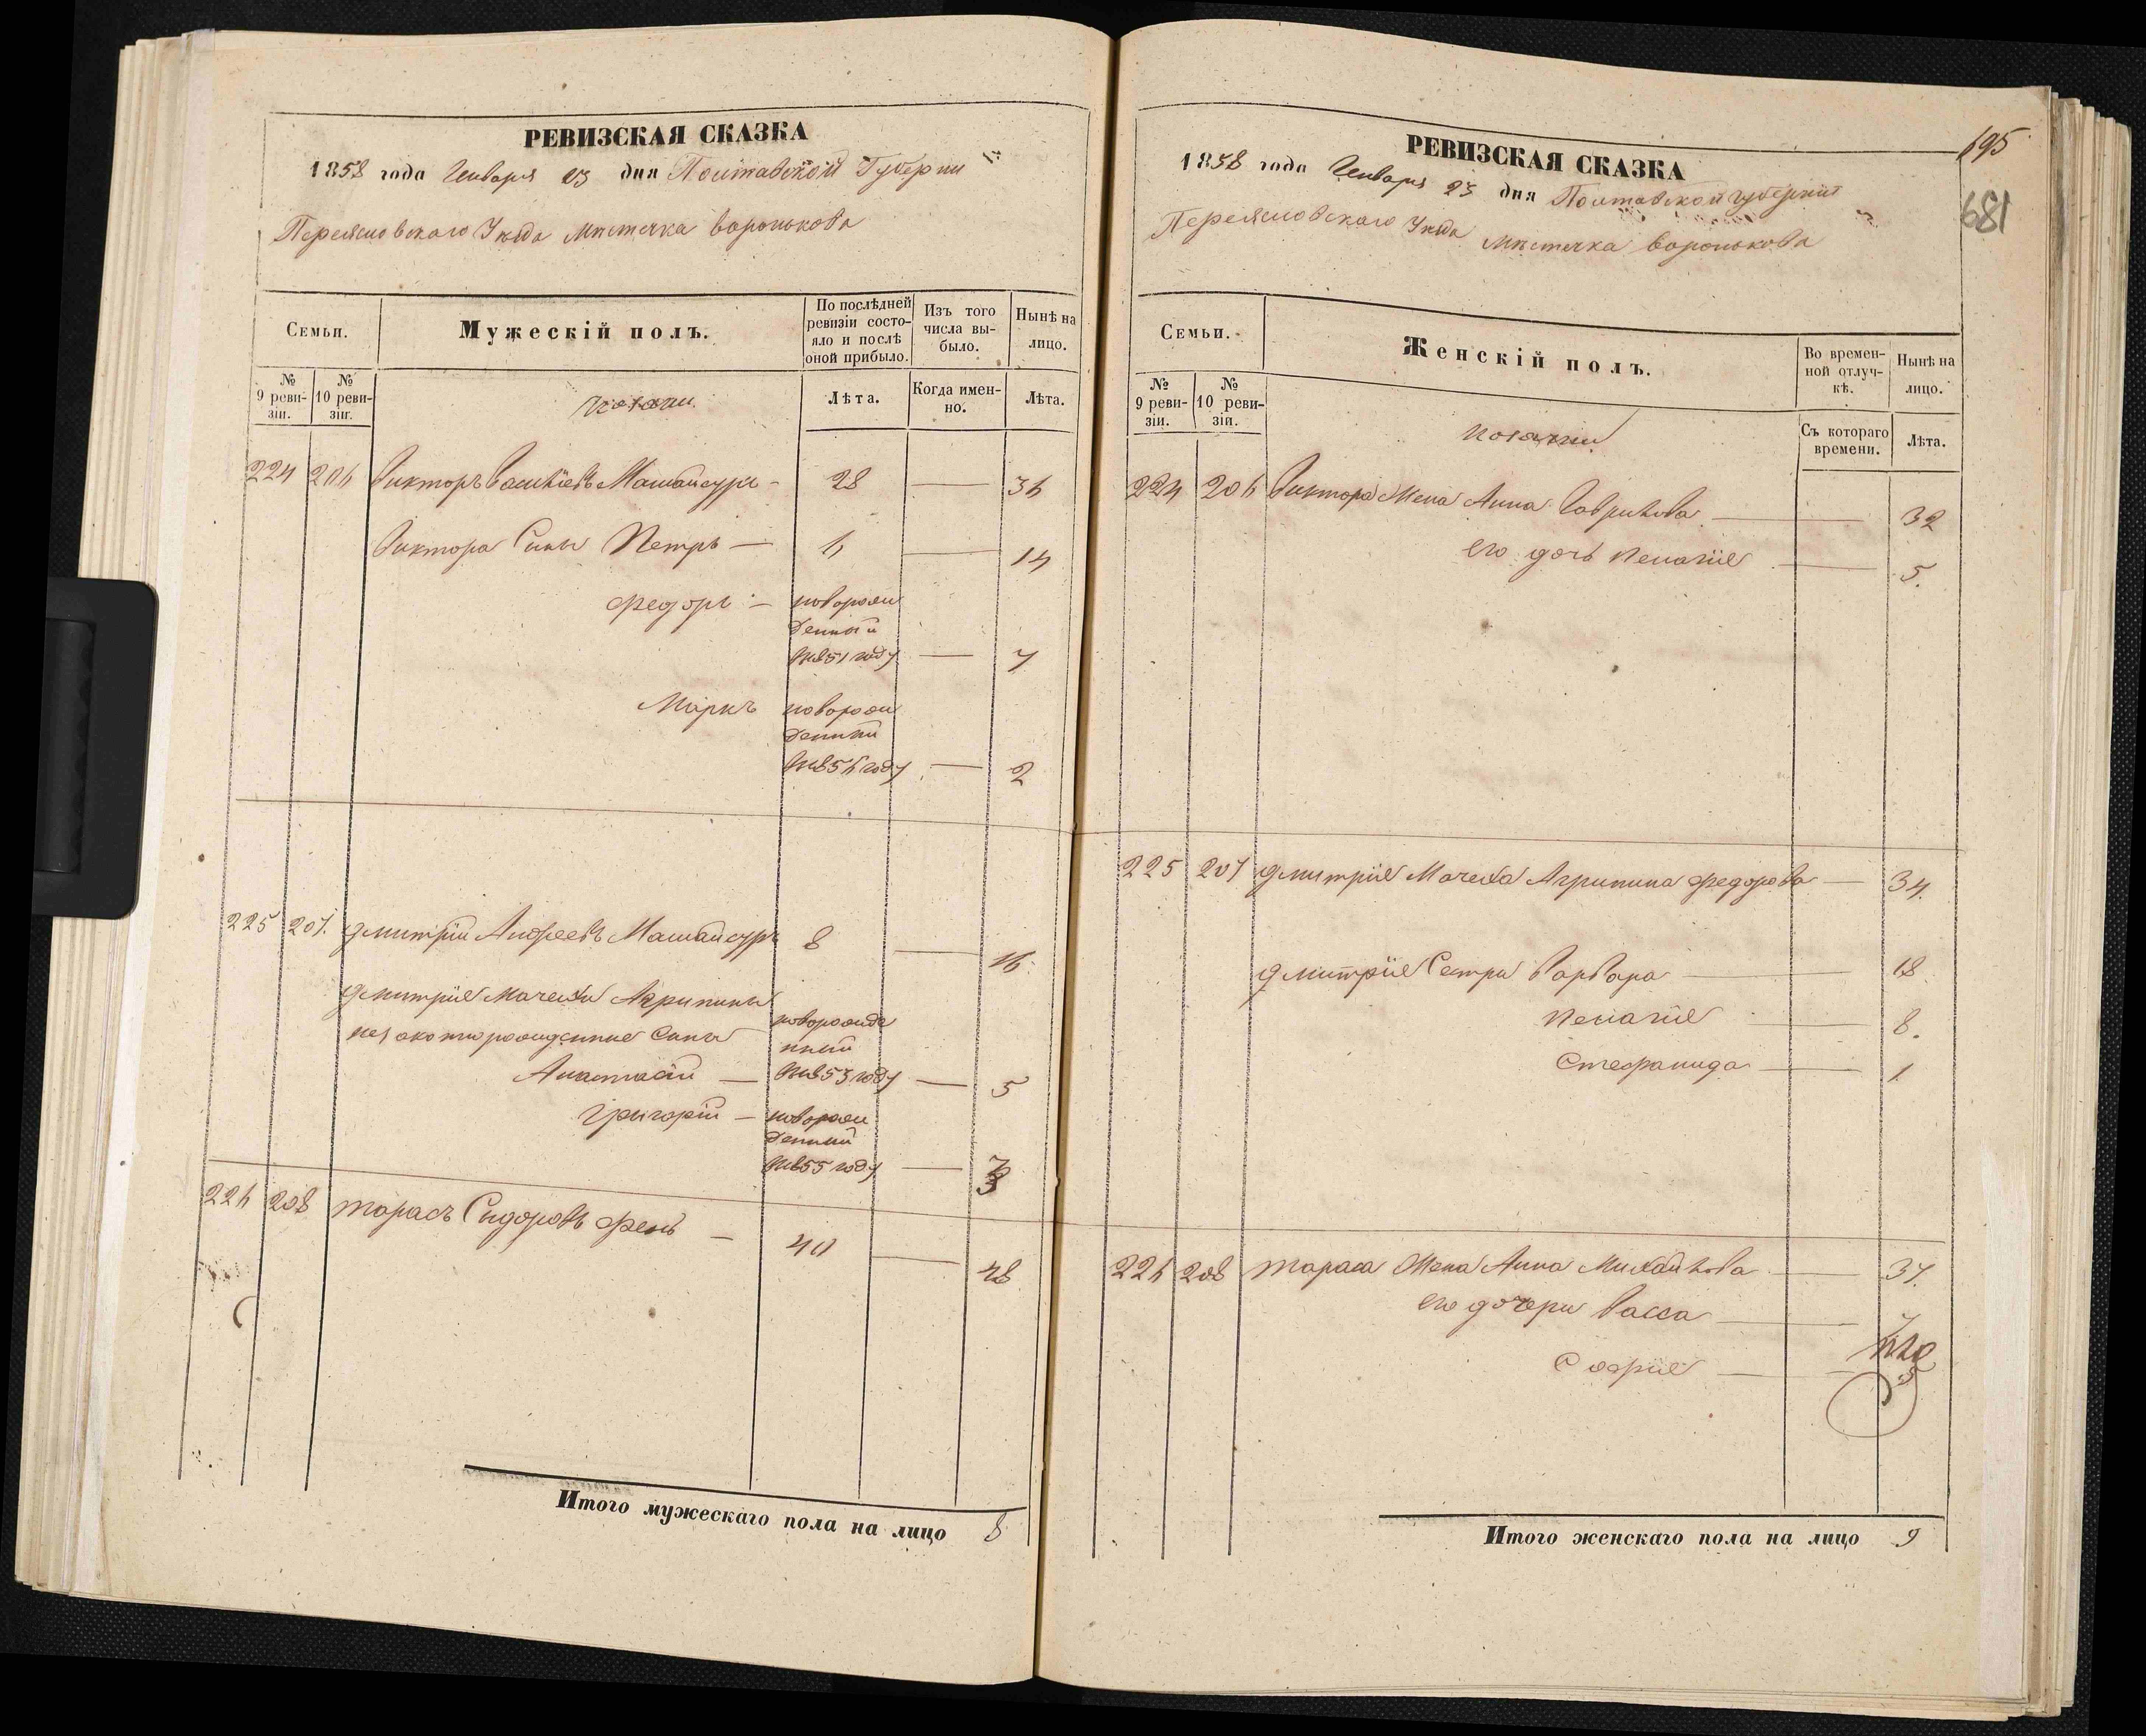 РЕВИЗСКАЯ СКАЗКА
1858 года Генваря 23 дня Полтавской Губернии
Переясловского Уезда Местечка Воронькова
Семьи.
Мужескій полъ.
По послѣдней ревизіи состояло и послѣ оной прибыло.
Изъ того числа выбыло.
Нынѣ на лицо.
№ 9 ревизіи.
№ 10 ревизіи.
Козаки
Лѣта.
Когда именно.
Лѣта.
224 206 Викторъ Василіевъ 28 — 36
Виктора Сыны Петръ — 6 — 14
Федоръ — новорожденный 1851 году — 7
Маркъ новорожденный 1856 году — 2
225 207. Дмитрій Андреевъ 8 — 16.
Дмитрія Мачехи Агрипины
незаконнорожденные Сыны
Анастасій — новорожденный 1853 году — 5
Григорій — новорожденный 1855 году — 3
226 208 Тарасъ Сидоровъ Фень — 40 — 48
Итого мужескаго пола на лицо 8
695
681
РЕВИЗСКАЯ СКАЗКА
1858 года Генваря 23 дня Полтавской Губерніи
Переясловского Уезда Местечка Воронькова
Семьи.
Женскій полъ.
Во временной отлучкѣ.
Нынѣ на лицо.
№ 9 ревизіи.
№ 10 ревизіи.
Козачки
Съ котораго времени.
Лѣта.
224 206 Виктора Жена Анна Гаврилова — 32
его дочь Пелагія — 5.
225 207 Дмитрія Мачеха Агрипина Федорова — 34.
Дмитрія Сестры Варвара — 18
Пелагія — 8.
Стефанида — 1
226 208 Тараса Жена Анна Михайлова — 37.
его дочери Васса —
Софія —
Итого женскаго пола на лицо 9